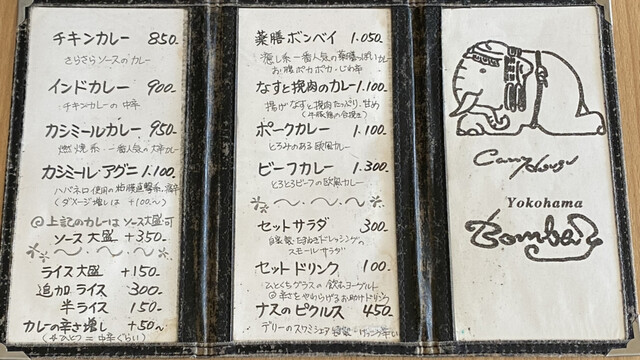 チキンカレー 850-
さらさらソースのカレー
インドカレー 900-
チキンカレーの中辛
カシミールカレー 950-
燃焼系・一番人気の大辛カレー
カシミール・アグニ 1.100-
ハバネロ使用の
(ダメージ増しは +100~)
◎上記のカレーはソース大盛可
ソース大盛 +350-
ライス大盛 +150-
追加ライス 300-
半ライス 150-
カレーの辛さ増し +50~
(チリひとつ = 中辛ぐらい)
薬膳ボンベイ 1.050-
癒し系・一番人気の薬膳っぽいカレー
お腹ポカポカ・じわ辛
なすと挽肉のカレー 1.100-
揚げなすと挽肉たっぷり、甘め
(牛豚鶏の合挽き)
ポークカレー 1.100-
とろみのある欧風カレー
ビーフカレー 1.300-
とろとろビーフの欧風カレー
セットサラダ 300-
自家製・玉ねぎドレッシングの
スモールサラダ
セットドリンク 100-
ひとくちグラスの飲むヨーグルト
◎辛さをやわらげるお助けドリンク
ナスのピクルス 450-
デリーの
Curry House
Yokohama
Bombay